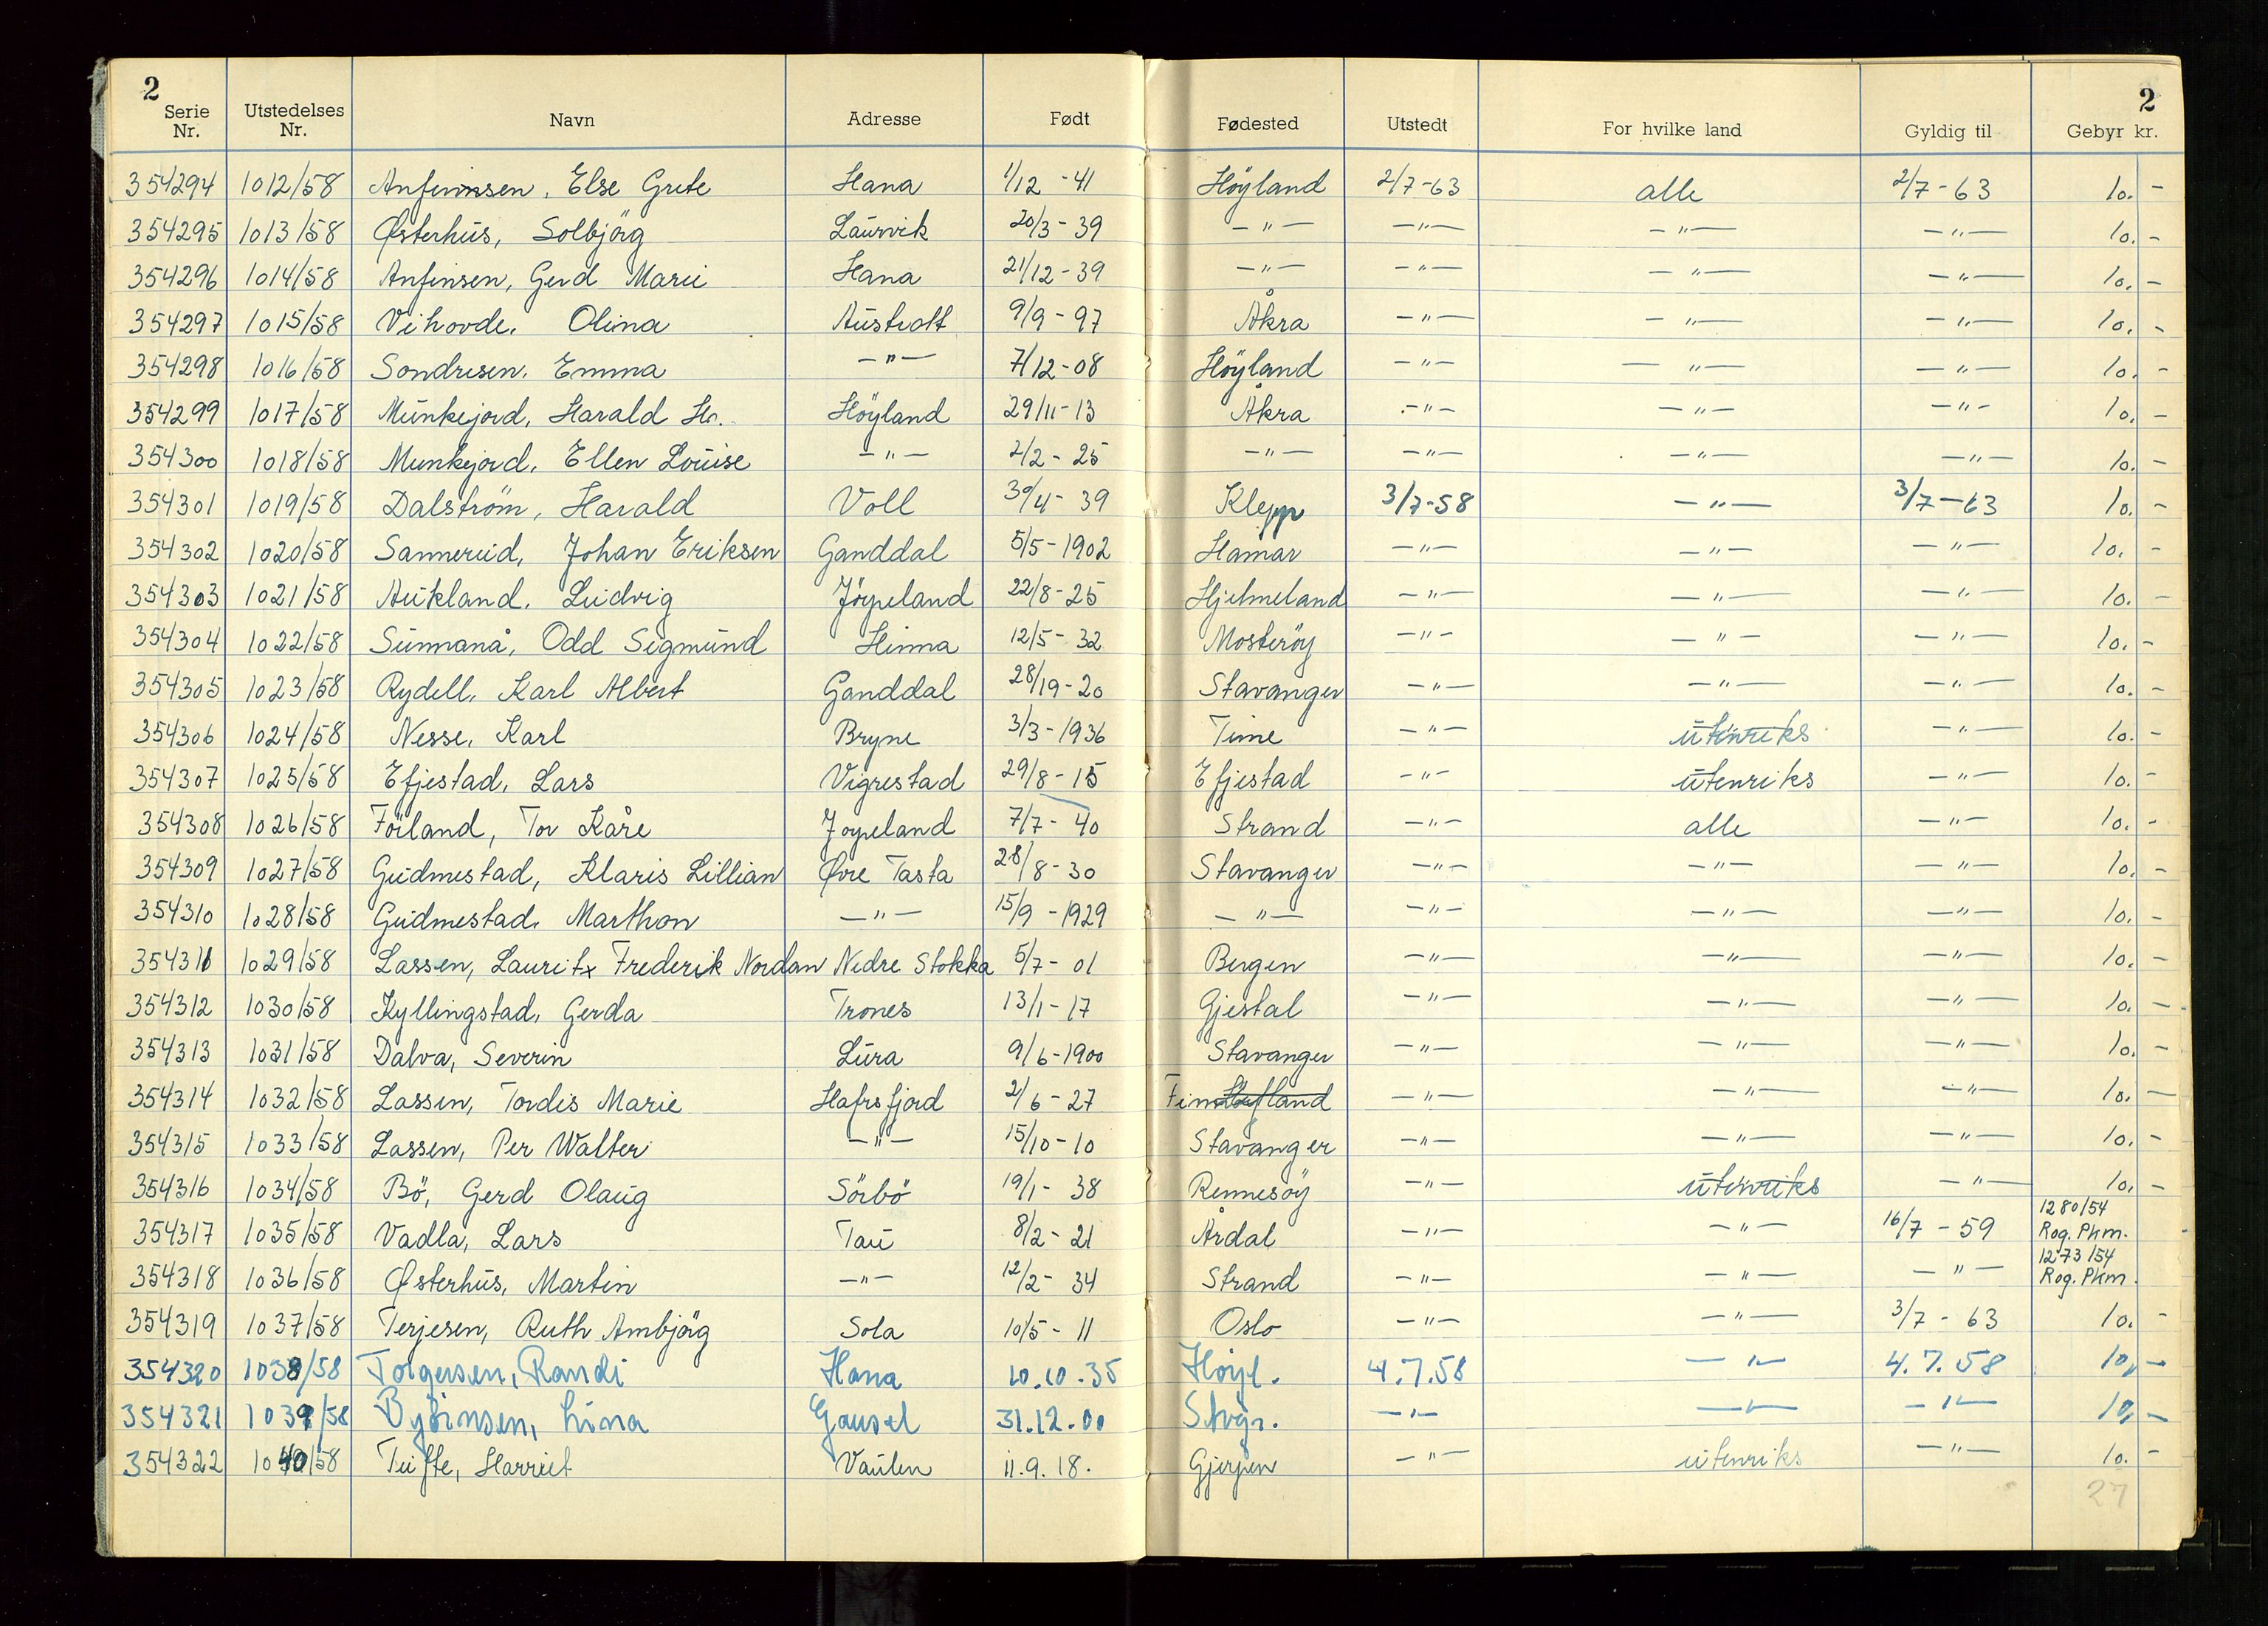 2 2
Serie Nr. Utstedelses Nr. Navn Adresse Født Fødested Utstedt For hvilke land Gyldig til Gebyr kr.
354294 1012/58 Anfinnsen, Else Grete Hana 1/12 - 41 Höyland 2/7-63 alle 2/7-63 10. -
354295 1013/58 Østerhus, Solbjörg Laurvik 20/3 - 39 -"- -"- -"- -"- 10. -
354296 1014/58 Anfinsen, Gerd Marie Hana 21/12 - 39 -"- -"- -"- -"- 10. -
354297 1015/58 Vihovde, Olina Austratt 9/9 - 97 Åkra -"- -"- -"- 10. -
354298 1016/58 Sondresen, Emma -"- 7/12-08 Höyland -"- -"- -"- 10. -
354299 1017/58 Munkejord, Harald Hr. Höyland 29/11-13 Åkra -"- -"- -"- 10. -
354300 1018/58 Munkejord, Ellen Louise -"- 2/2 - 25 -"- -"- -"- -"- 10. -
354301 1019/58 Dalström, Harald Voll 30/4 - 39 Klepp 3/7-58 -"- 3/7-63 10. -
354302 1020/58 Sannerud, Johan Eriksen Ganddal 5/5-1902 Hamar -"- -"- -"- 10. -
354303 1021/58 Aukland, Ludvig Jörpeland 22/8-25 Hjelmeland -"- -"- -"- 10. -
354304 1022/58 Sunnanå, Odd Sigmund Hinna 12/5 - 32 Mosteröy -"- -"- -"- 10. -
354305 1023/58 Rydell, Karl Albert Ganddal 28/19-20 Stavanger -"- -"- -"- 10. -
354306 1024/58 Nesse, Karl Bryne 3/3-1936 Time -"- utenriks -"- 10. -
354307 1025/58 Efjestad, Lars Vigrestad 29/8-15 Efjestad -"- utenriks -"- 10. -
354308 1026/58 Föiland, Tor Kåre Jørpeland 7/7 - 40 Strand -"- alle -"- 10. -
354309 1027/58 Gudmestad, Klaris Lillian Øvre Tasta 28/8-30 Stavanger -"- -"- -"- 10. -
354310 1028/58 Gudmestad, Marthon -"- 15/9 -1929 -"- -"- -"- -"- 10. -
354311 1029/58 Lassen, Lauritz Frederik Nordan Nedre Stokka 5/7 - 01 Bergen -"- -"- -"- 10. -
354312 1030/58 Kyllingstad, Gerda Trones 13/1-17 Gjestal -"- -"- -"- 10. -
354313 1031/58 Dalva, Severin Lura 9/6-1900 Stavanger -"- -"- -"- 10. -
354314 1032/58 Lassen, Tordis Marie Hafrsfjord 2/6 - 27 -"- -"- -"- 10. -
354315 1033/58 Lassen, Per Walter -"- 15/10-10 Stavanger -"- -"- -"- 10. -
354316 1034/58 Bö, Gerd Olaug Sörbö 19/1- 38 Rennesöy -"- utenriks -"- 10. -
354317 1035/58 Vadla, Lars Tau 8/2-21 Årdal -"- -"- 16/7 - 59 1280/54 Rog. Pkm.
354318 1036/58 Østerhus, Martin -"- 12/2- 34 Strand -"- -"- -"- 1273/54 Rog. Pkm.
354319 1037/58 Terjesen, Ruth Ambjörg Sola 10/5 - 11 Oslo -"- -"- 3/7 - 63 10. -
354320 1038/58 Torgersen, Randi Hana 10.10.35 Höyl. 4.7.58 -"- 4.7.58 10, -
354321 1039/58 Lina Gausel 31.12.00 Stvgr. -"- -"- -"- 10, -
354322 1040/58 Tufte, Harriet Vaulen 11.9.18. Gjerpen -"- utenriks -"- 10. -
27